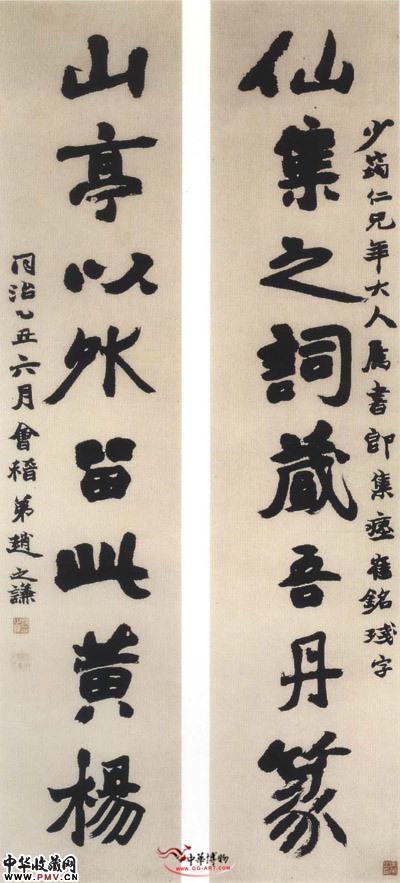 少筠仁兄年大人属書即集瘗隺銘残字
仙集之詞藏吾丹篆
山亭以外留此黄楊
同治乙丑六月會稽弟趙之謙
中华收藏网
www.PMV.CN
中華博物
www.gg-art.com